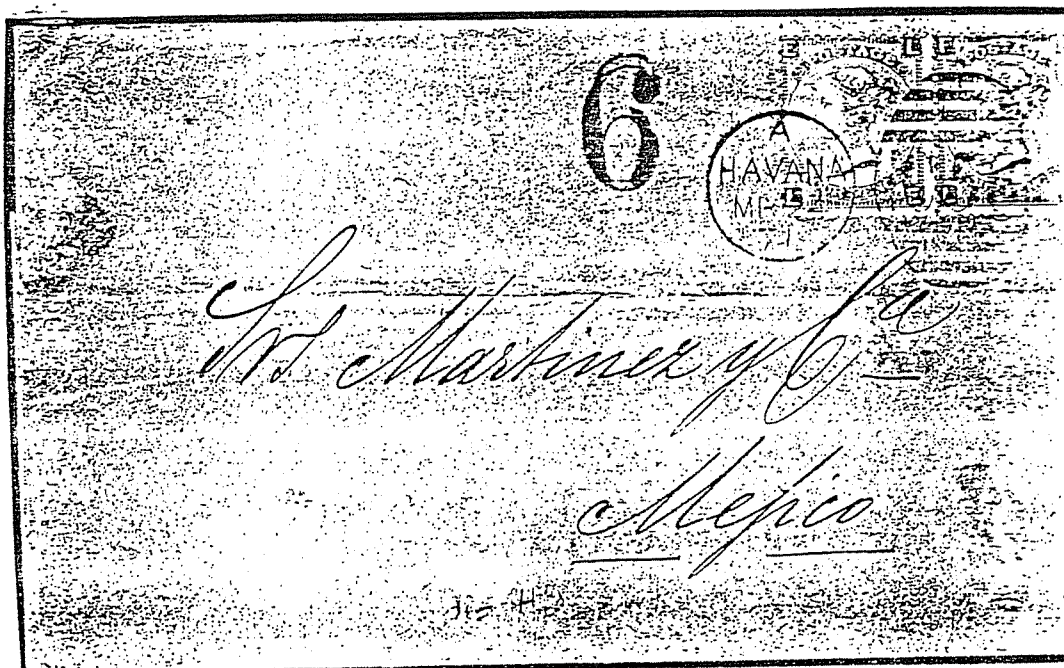 6
A
HAVANA
Srs Martinez y Cª
Mejico